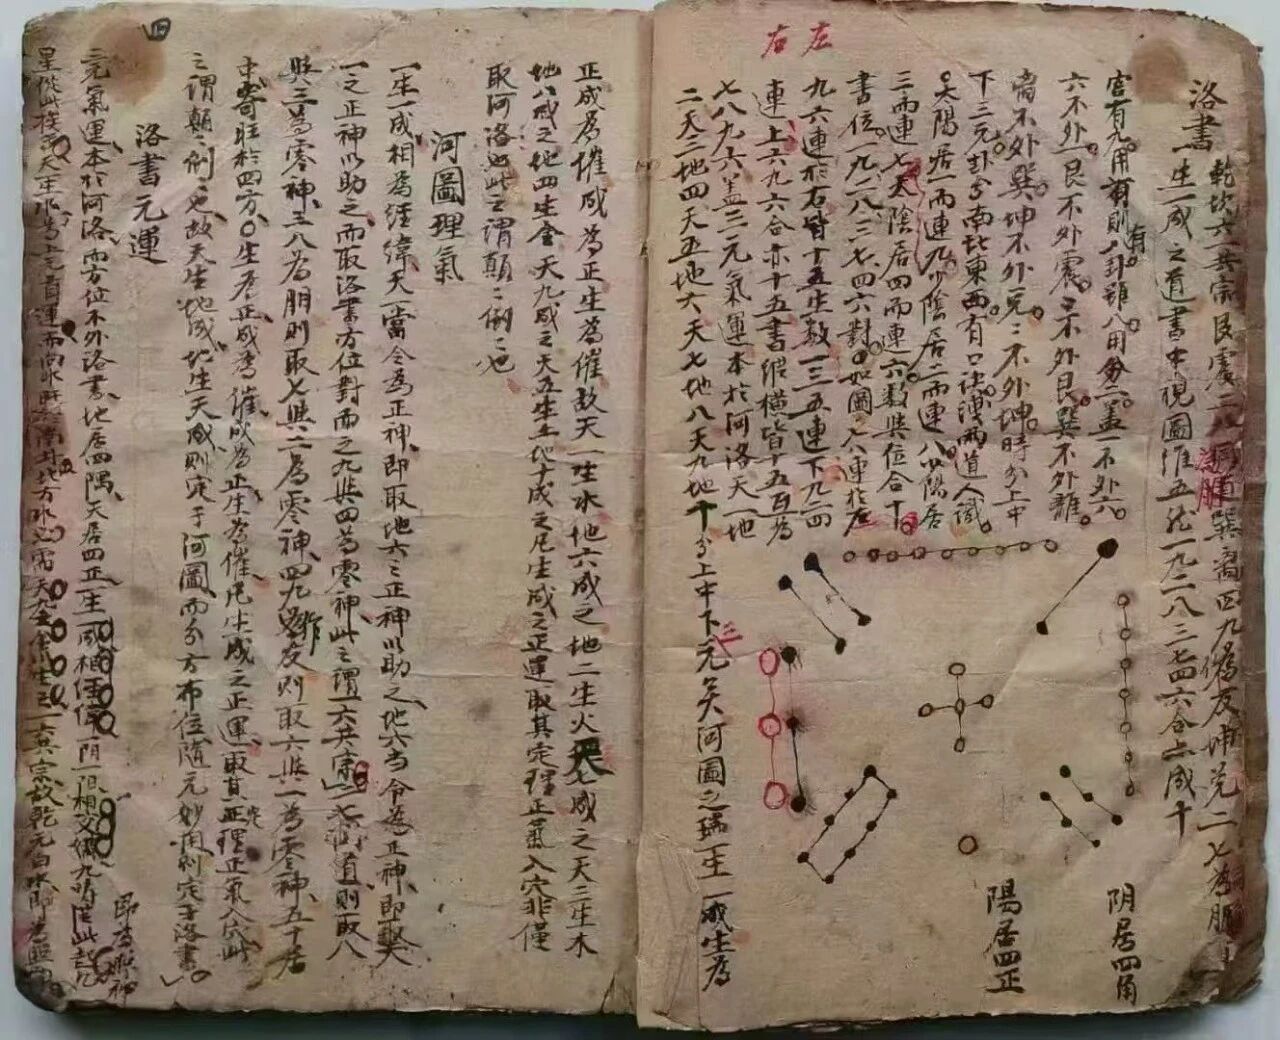 右 左
洛書
乾坎六一共宗艮震三八為朋巽离四九為友坤兑二七為
一生一成之道書中視圖維五 一九二八三七四六合二成十
宫有九用有則八卦雖八用 盖一不外六
六不外一艮不外震三不外艮巽不外離
离不外巽坤不外兑二不外坤時分上中
下三元卦分南北東西有口法傳兩道人識
太陽居一而連九少陰居二而連八少陽居
三而連七太陰居四而連六數與位合十
書位一九二八三七四六對如圖八連於左
九六連於右皆十五生数一三五連下九四
連上六九六合亦十五書縱横皆十五
七八九六盖三元氣運本於河洛天一地
二天三地四天五地六天七地八天九地十分上中下元矣河圖之瑞一生一成生為
陰居四角
陽居四正
三
正成為催成為正生為催故天一生水地六成之地二生火天七成之天三生木
地八成之地四生金天九成之天五生土地十成之凡生成之正運取其定理正氣入穴非僅
取河洛 此之謂顛顛倒倒也
河圖理氣
一生一成相為經緯天一當令為正神即取地六之正神以助之地六當令為正神即
一之正神以助之而取洛書方位對面之九與四為零神此之謂一六共宗二七 道則取八
與三為零神三八為朋則取七與二為零神四九作友則取六與一為零神五十居
中寄旺於四方生為正成為催成為正生為催凡生成之正運取其正理正氣入穴此
之謂顛顛倒倒也故天生地成地生天成則定于河圖而分方布位隨元妙用則定于洛書
洛書元運
四
三元氣運本於河洛而方位不外洛書地居四隅天居四正一生一成相 陰一陽相交 九
即為照神
星 天一生水為上元首運 一六共宗故乾元白水即為照